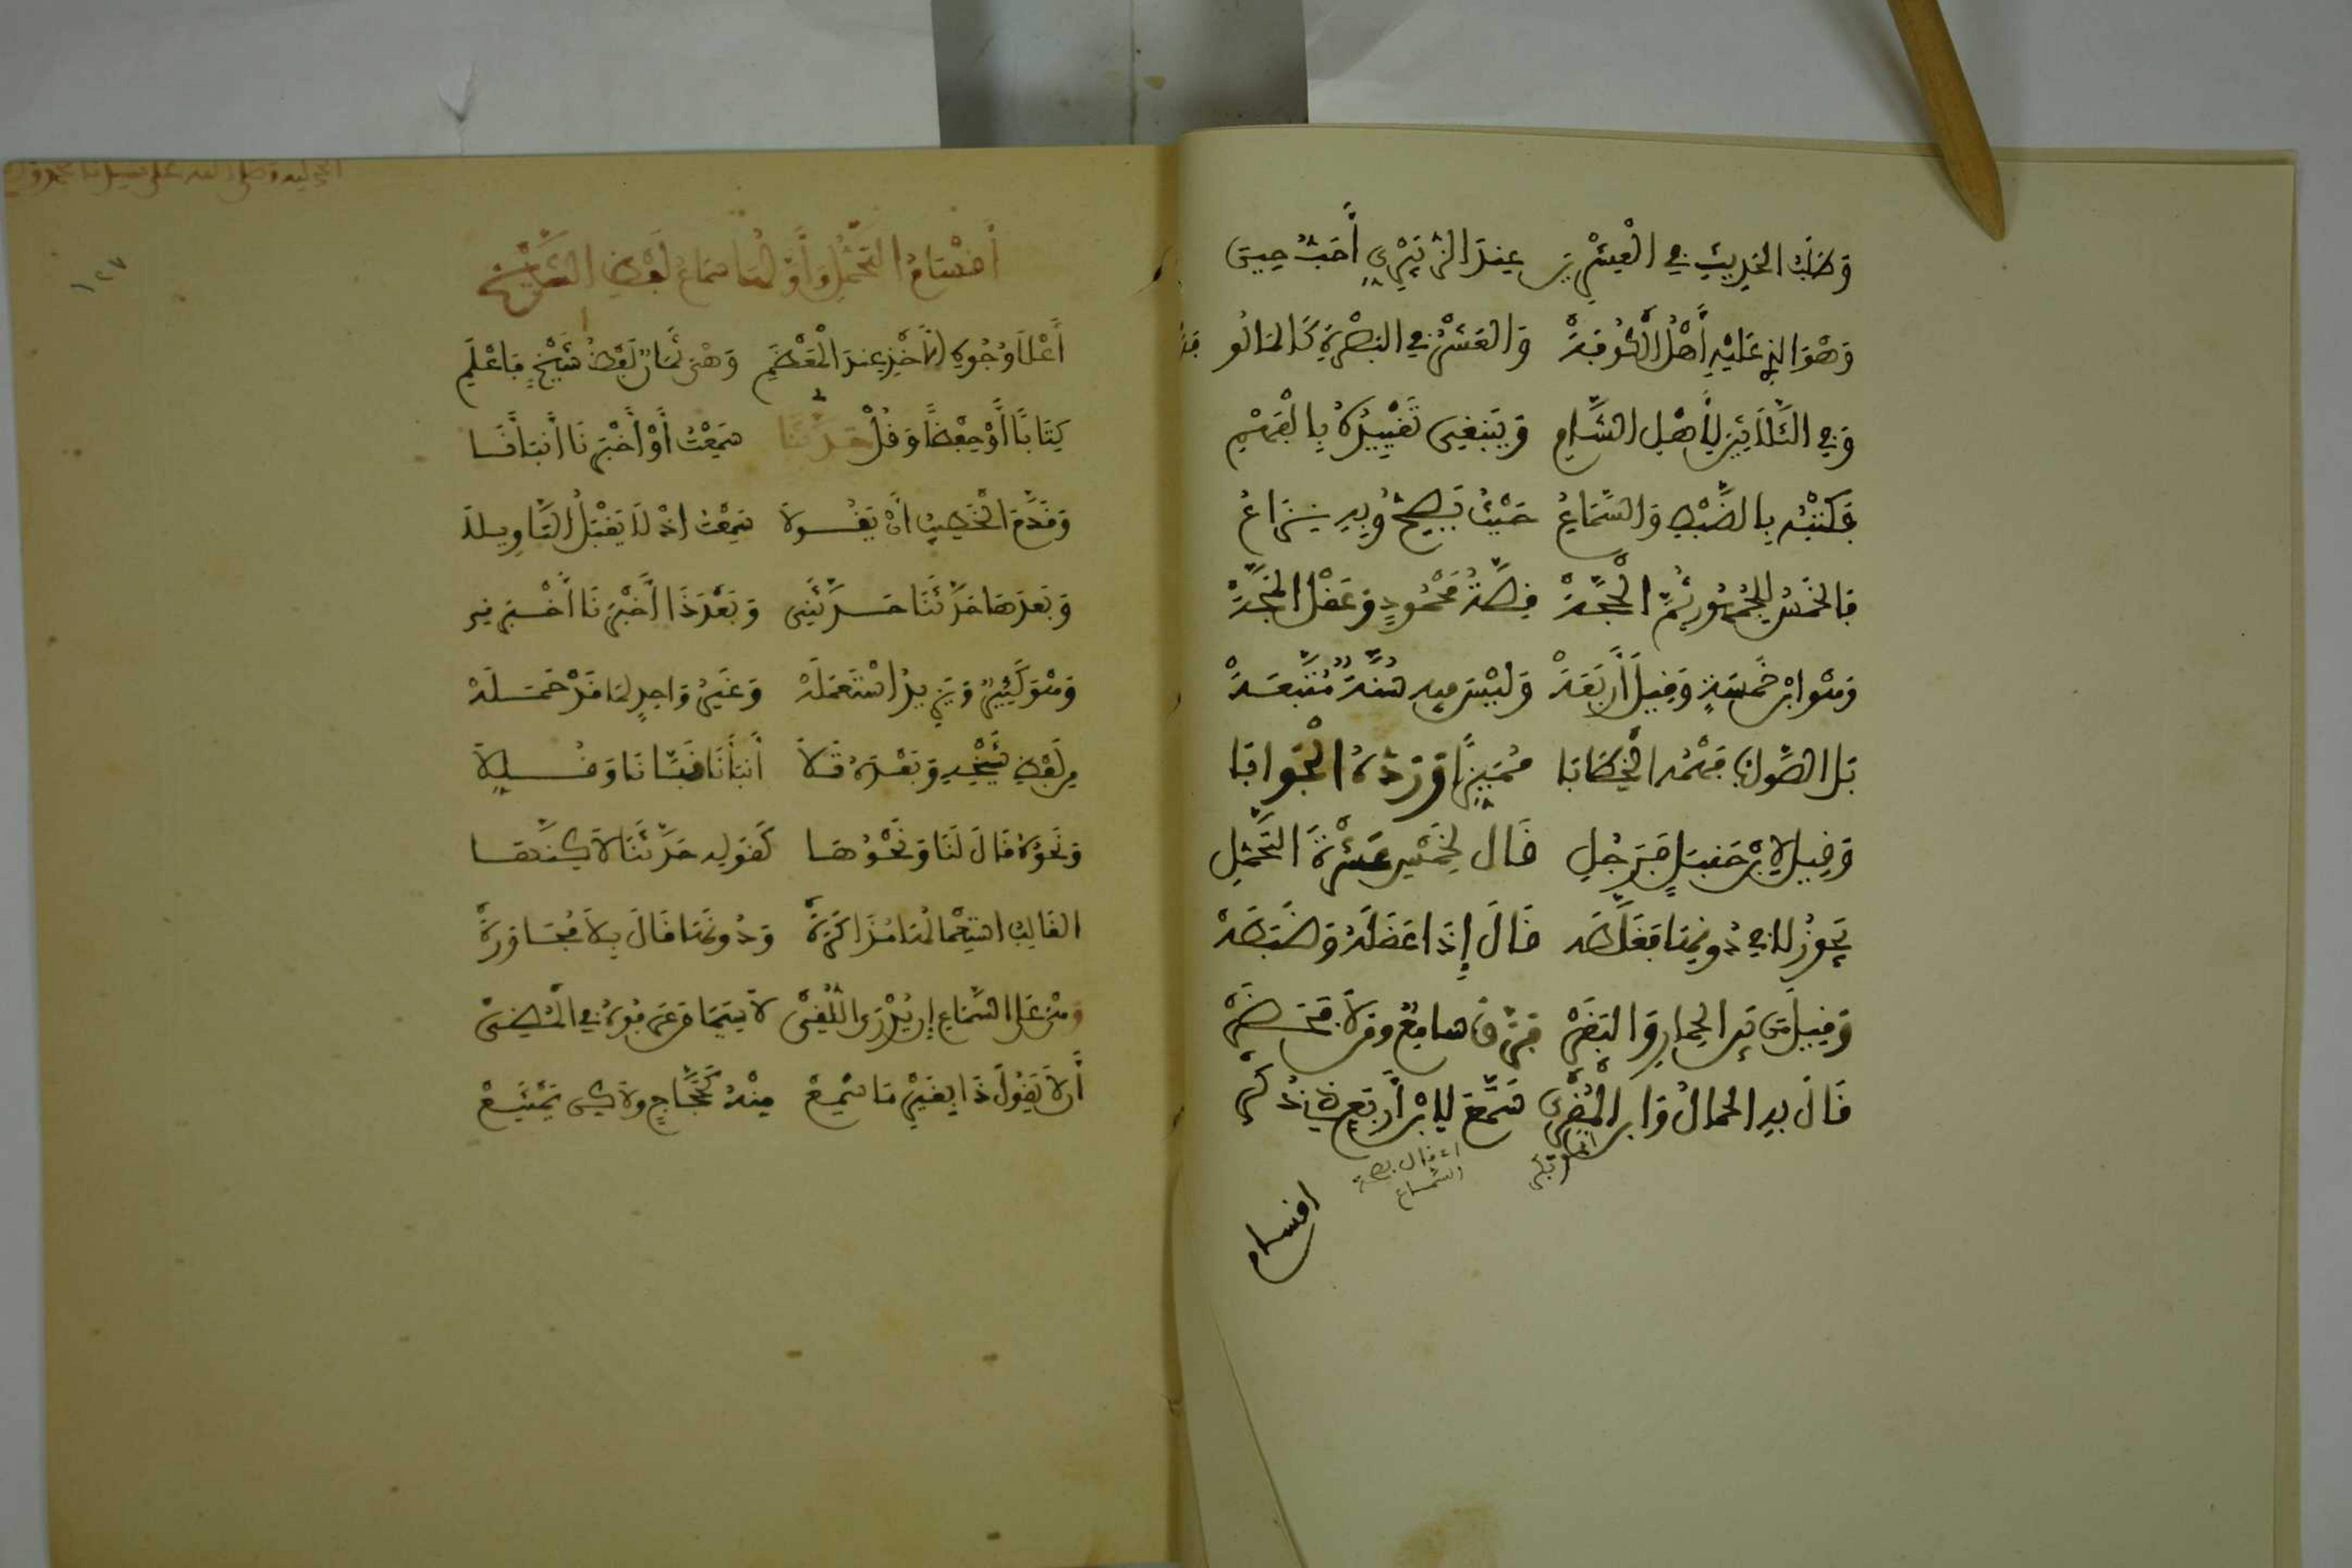 وَطَلَبُ الحَدِيثِ فِي الْعِشْرِينَ عِنْدَ الزُّبَيْرِيِّ أَحَبُّ حِينِ
وَهْوَ الذِي عَلَيْهِ أَهْلُ الْكُوفَةْ وَالعَشْرُ فِي البَصْرَةِ كَالمَالُوفَهْ
وَفِي الثَّلَاثِينَ لِأَهْلِ الشَّامِ وَيَنْبَغِي تَقْيِيدُهُ بِالْفَهْمِ
فَكَتْبُهُ بِالضَّبْطِ وَالسَّمَاعُ حَيْثُ يَصِحُّ وَبِهِ نِزَاعُ
فَالخَمْسُ لِلْجُمْهُورِ ثُمَّ الْحُجَّةْ قِصَّةُ مَحْمُودٍ وَعَقْلُ المَجَّةْ
وَهْوَ ابْنُ خَمْسَةٍ وَقِيلَ أَرْبَعَةْ وَلَيْسَ فِيهِ سُنَّةٌ مُتَّبَعَةْ
بَلِ الصَّوَابُ فَهْمُهُ الْخِطَابَا مُمَيِّزًا وَرَدُّهُ الْجَوَابَا
وَقِيلَ لِابْنِ حَنْبَلٍ فَرَجُلِ قَالَ لِخَمْسَ عَشْرَةَ التَّحَمُّلِ
يَجُوزُ لَا فِي دُونِهَا فَغَلَّطَهْ قَالَ إِذَا عَقَلَهُ وَضَبَطَهْ
وَقِيلَ مَنْ بَيْنَ الحِمَارِ وَالبَقَرْ فَرَّقَ سَامِعٌ وَمَنْ لَا فَحَضَرْ
قَالَ بِهِ الحمالُ وَابْنُ الْمُقْرِي سَمَّعَ لِابْنِ أَرْبَعٍ ذِي ذُكْرِ
اي قال بصحة السماع
اقسام
أَقْسَامُ التَّحَمُّلِ وَأَوَّلُهَا سَمَاعُ لَفْظِ الشَّيْخِ
أَعْلَا وُجُوهِ الأَخْذِ عِنْدَ الْمُعْظَمِ وَهْيَ ثَمَانٍ لَفْظُ شَيْخٍ فَاعْلَمِ
كِتَابًا أَوْ حِفْظًا وَقُلْ حَدَّثَنَا سَمِعْتُ أَوْ أَخْبَرَنَا أَنْبَأَنَا
وَقَدَّمَ الْخَطِيبُ أَنْ يَقُولَا سَمِعْتُ اذْ لَا يَقْبَلُ التَّاوِيلَا
وَبَعْدَهَا حَدَّثَنَا حَدَّثَنِي وَبَعْدَ ذَا أَخْبَرَنَا أَخْبَرَنِي
وَهْوَ كَثِيرٌ وَيَزِيدُ اسْتَعْمَلَهْ وَغَيْرُ وَاحِدٍ لِمَا قَدْ حَمَلَهْ
مِنْ لَفْظِ شَيْخِهِ وَبَعْدَهُ تَلَا أَنْبَأَنَا نَبَّأَنَا وَقُلِّلَا
وَنَحْوُهُ قَالَ لَنَا وَنَحْوُهَا كَقَولِهِ حَدَّثَنَا لَكِنَّهَا
الغَالِبُ اسْتِعْمَالُهَا مُذَاكَرَةْ وَدُونَهَا قَالَ بِلَا مُجَاوَرَةْ
وَهْيَ عَلَى السَّمَاعِ إِنْ يُدْرَى اللُّقِيّْ لَا سِيَّمَا مَنْ عَرَفُوهُ فِي الْمُضِيّْ
أَنْ لَا يَقُولَ ذَا لِغَيْرِ مَا سَمِعْ مِنْهُ كَحَجَّاجٍ وَلَكِنْ يَمْتَنِعْ
١٢٧